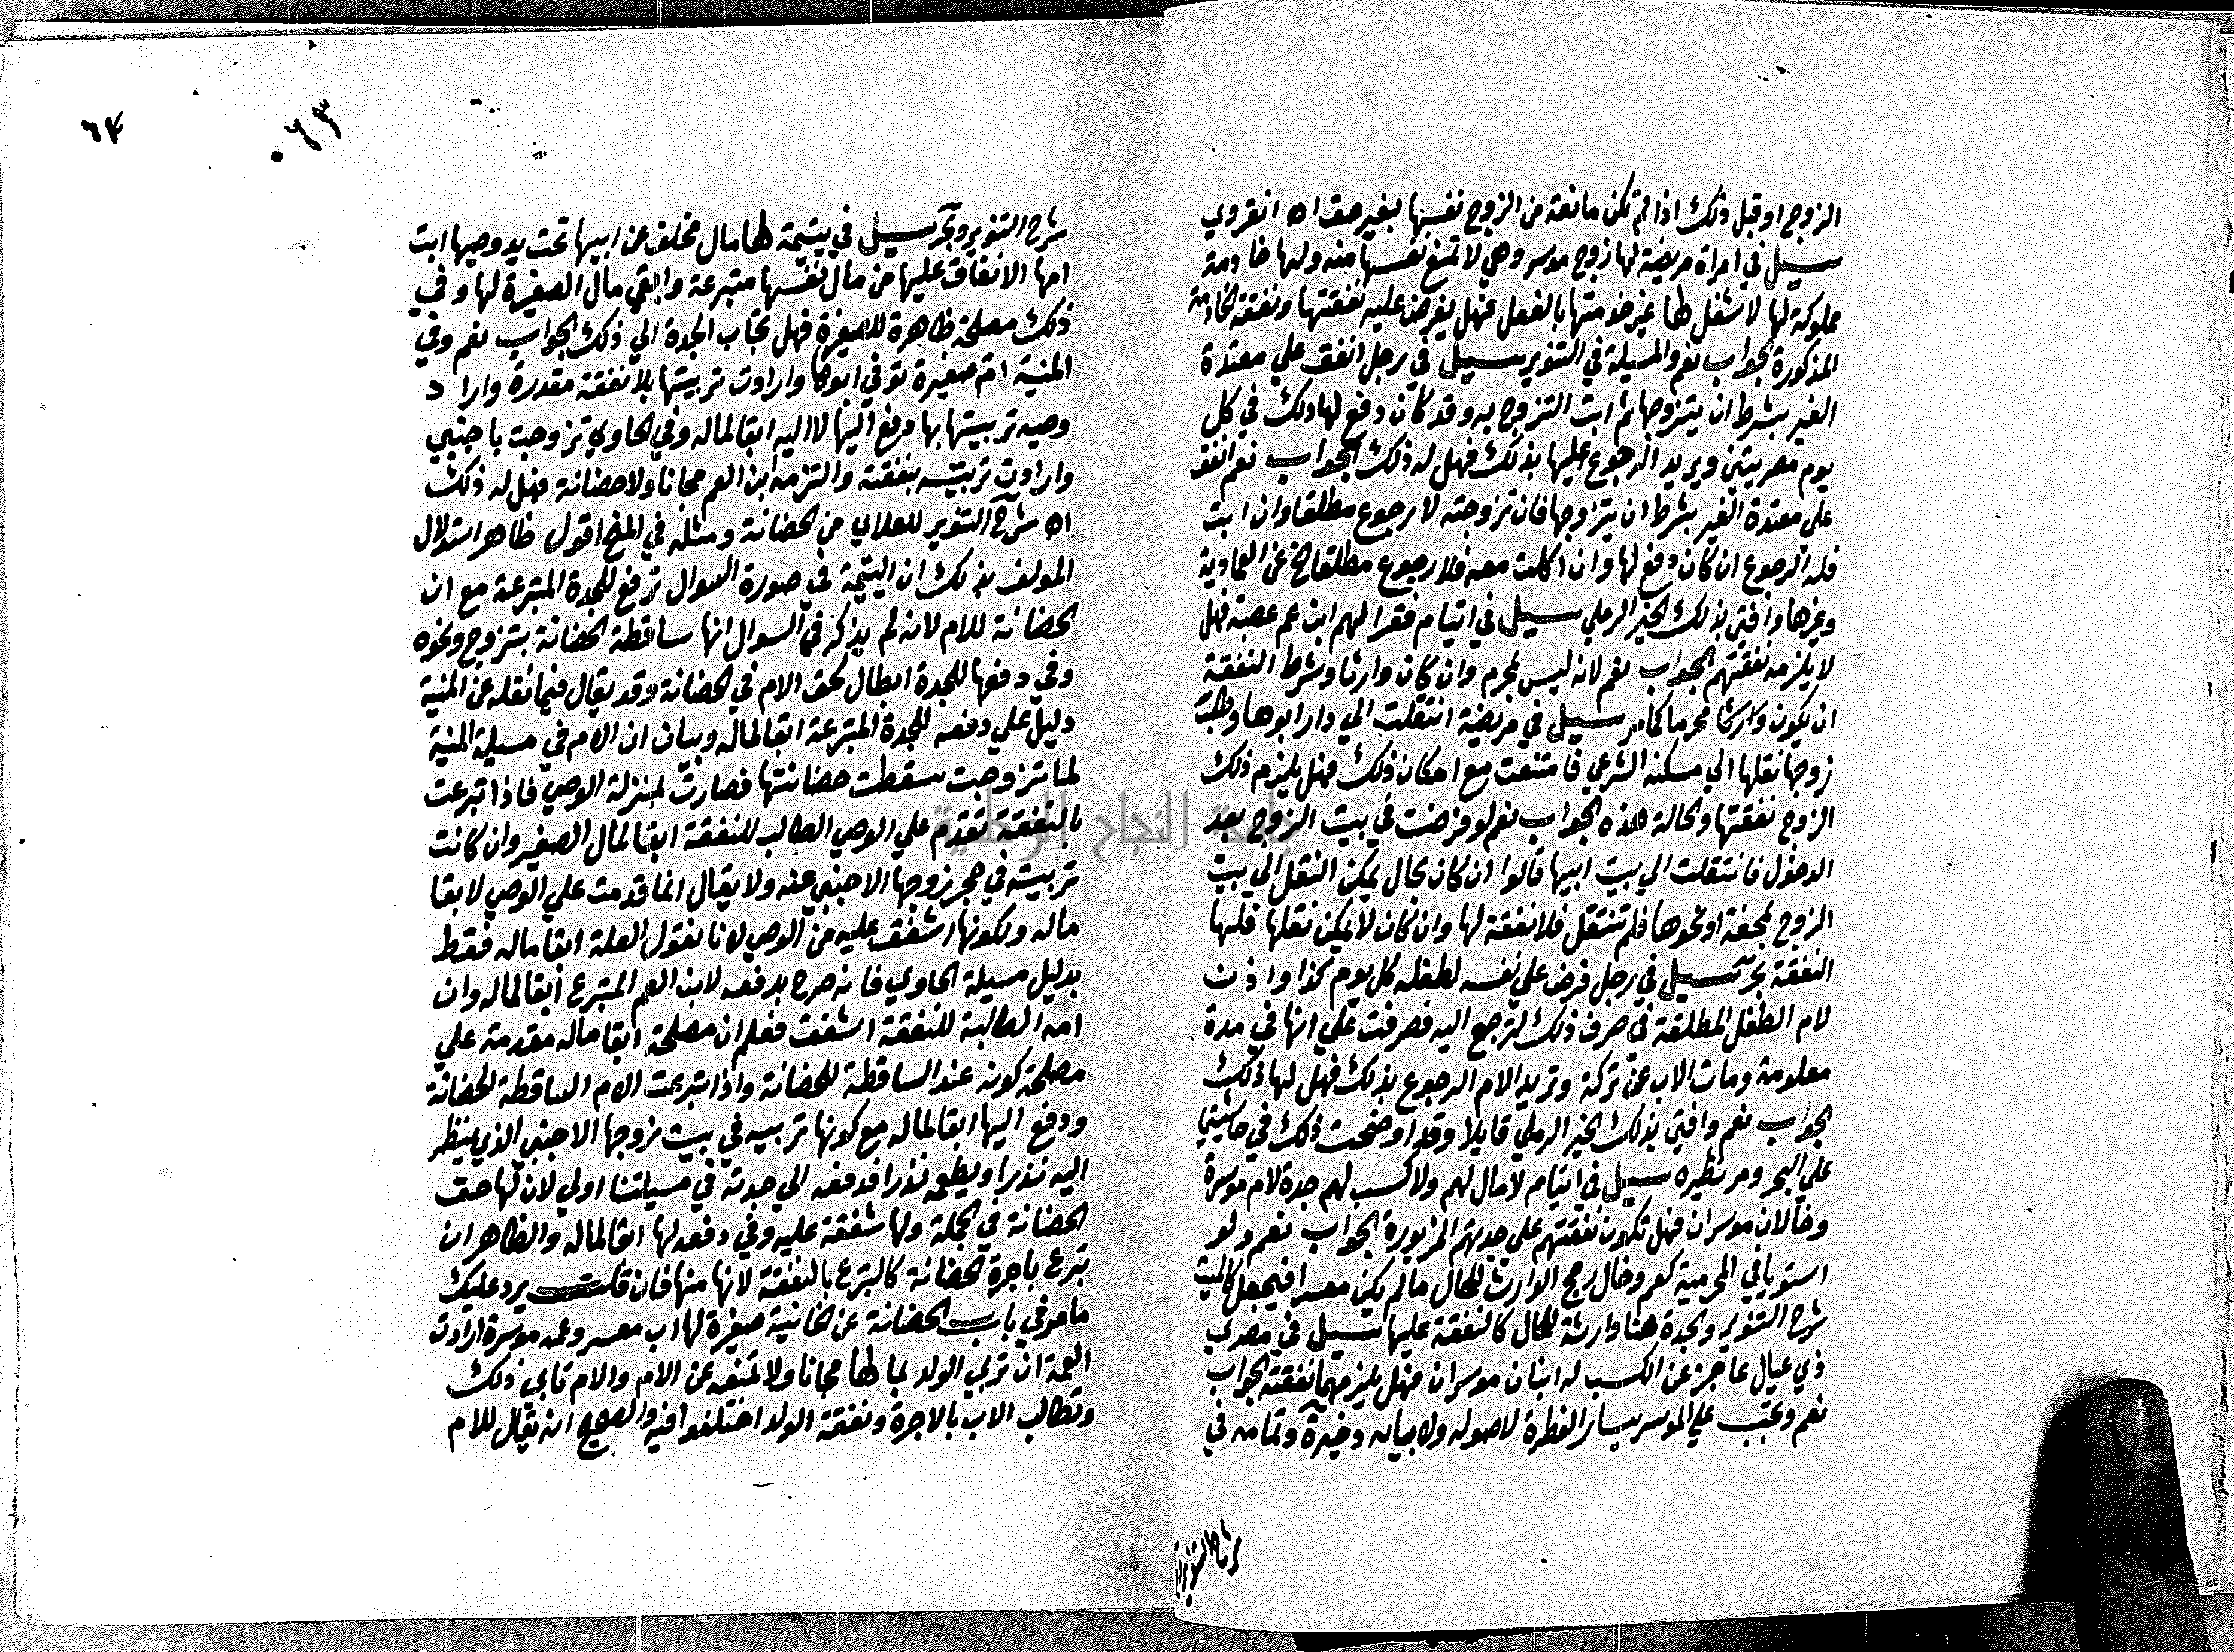 الزوج او قبل ذلك اذا لم تكن مانعة من الزوج نفسها بغير حق اه انقروي
سيل في امراة مريضة لها زوج موسر وهي لا تمنع نفسها منه ولها خادمة
مملوكة لها لا شغل لها غير خدمتها بالفعل فهل يفرض عليه نفقتها ونفقة الخادمة
المذكورة الجواب نعم والمسيلة في التنوير سيل في رجل انفق علي معتدة
الغير بشرط ان يتزوجها ثم ابت التزوج به وقد كان دفع لها ذلك في كل
يوم مصريتين ويريد الرجوع عليها بذلك فهل له ذلك الجواب نعم انفق
علي معتدة الغير بشرط ان يتزوجها فان تزوجته لا رجوع مطلقا وان ابت
فله الرجوع ان كان دفع لها وان اكلت معه فلا رجوع مطلقا منح عن العمادية
وغيرها وافتي بذلك الخير الرملي سيل في ايتام فقرا لهم ابن عم عصبة فهل
لا يلزمه نفقتهم الجواب نعم لانه ليس بمحرم وان كان وارثا وشرط النفقة
ان يكون وارثا محرما كما مر سيل في مريضة انتقلت الي دار ابوها وطلب
زوجها نقلها الي مسكنه الشرعي فامتنعت مع امكان ذلك فهل يلزم ذلك
الزوج نفقتها والحالة هذه الجواب نعم لو مرضت في بيت الزوج بعد
الدخول فانتقلت الي بيت ابيها قالوا ان كان بحال يمكن النقل الي بيت
الزوج بمحفة او نحوها فلم تنتقل فلا نفقة لها وان كان لا يمكن نقلها فلها
النفقة بحر سيل في رجل فرض علي نفسه لطفله كل يوم كذا واذن
لام الطفل المطلقة في صرف ذلك لترجع اليه فصرفت علي انها في مدة
معلومة ومات الاب عن تركة وتريد الام الرجوع بذلك فهل لها ذلك
الجواب نعم وافتي بذلك الخير الرملي قايلا وقد اوضحت ذلك في حاشيتي
علي البحر ومر نظيره سيل في ايتام لا مال لهم ولا كسب لهم جدة لام موسرة
وخالان موسران فهل تكون نفقتهم علي جدتهم المزبورة الجواب نعم ولو
استويا في المحرمية كعم وخال رجح الوارث للحال ما لم يكن معسرا فيجعل كالميت
شرح التنوير والجدة هنا وارثة للحال كالنفقة عليها سيل في مصري
ذي عيال عاجز عن الكسب له ابنان موسران فهل يلزمهما نفقته الجواب
نعم وتجب علي الموسر يسار الفطرة لاصوله ولابيانه دخيرة وتمامه في
شرح التنوير
٠٦٣
٦٤
شرح التنوير وبحر سيل في يتيمة لها مال مخلف عن ابيها تحت يد وصيها ابت
امها الانفاق عليها من مال نفسها متبرعة وابقي مال الصغيرة لها وفي
ذلك مصلحة ظاهرة للصغيرة فهل تجاب الجدة الي ذلك الجواب نعم وفي
المنية ام صغيرة توفي ابوها وارادت تربيتها بلا نفقة مقدرة واراد
وصيه تربيتها بها دفع اليها لا اليه ابقا لماله وفي الحاوي تزوجت باجنبي
وارادت تربيته بنفقة والتزمه ابن العم مجانا ولا حضانة فهل له ذلك
اه شرح التنوير للعلاي من الحضانة ومثله في المنح اقول ظاهر استدلال
المولف بذلك ان اليتيمة في صورة السوال تدفع للجدة المتبرعة مع ان
الحضانة للام لانه لم يذكر في السوال انها ساقطة الحضانة بتزوج ونحوه
وفي دفعها للجدة ابطال لحق الام في الحضانة وقد يقال فيما نقله عن المنية
دليل علي دفعه للجدة المتبرعة ابقا لماله وبيان ان الام في مسيلة المنية
لما تزوجت سقطت حضانتها فصارت بمنزلة الوصي فاذا تبرعت
بالنفقة تقدم علي الوصي الطالب للنفقة ابقا لمال الصغير وان كانت
تربيته في حجر زوجها الاجنبي عنه ولا يقال انما قدمت علي الوصي لابقا
ماله ولكونها اشفق عليه من الوصي لانا نقول العلة ابقا ماله فقط
بدليل مسيلة الحاوي فانه صرح بدفعه لابن العم المتبرع ابقا لماله وان
امه الطالبة للنفقة اشفقت فعلم ان مصلحة ابقا ماله مقدمة علي
مصلحة كونه عند الساقطة للحضانة واذا تبرعت الام الساقطة الحضانة
ودفع اليها ابقا لماله مع كونها تربيه في بيت زوجها الاجنبي الذي ينظر
اليه نذرا ويطعمه نذرا فدفعه الي جدته في مسيلتنا اولي لان لها حق
الحضانة في الجملة ولها شفقة عليه وفي دفعه لها ابقا لماله والظاهر ان
تبرع باجرة الحضانة كالتبرع بالنفقة لانها منها فان قلت يرد عليك
ما مر في باب الحضانة عن الخانية صغيرة لها اب معسر وعمه موسرة ارادت
العمة ان تربي الولد بمالها مجانا ولا تمنعه عن الام والام تابي ذلك
وتطالب الاب بالاجرة ونفقة الولد اختلفوا فيه والصحيح انه يقال للام
جامعة النجاح الوطنية